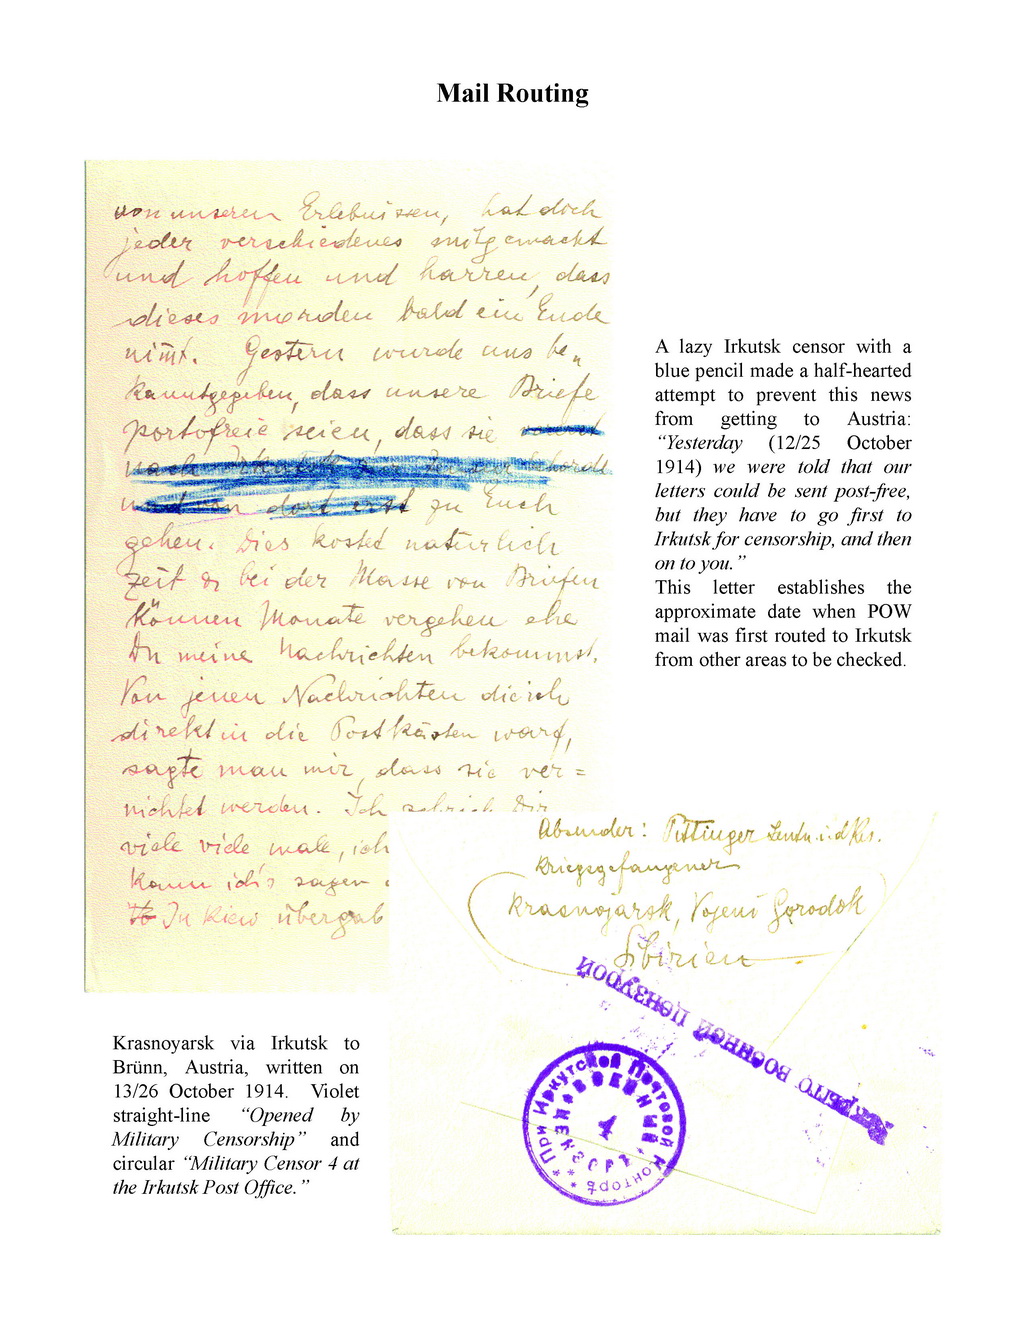 Mail Routing
von unseren Erlebnissen, hat doch
jeder verschiedenes mitgemacht
und hoffen und harren, dass
dieses morden bald ein Ende
nimt. Gestern wurde uns be
kanntgegeben, dass unsere Briefe
portofreie seien, dass sie
nach Irkutsk
und von dort erst zu Euch
gehen. Dies kostet natürlich
Zeit & bei der Masse von Briefen
können Monate vergehen ehe
Du meine Nachrichten bekommst.
Von jenen Nachrichten die ich
direkt in die Postkästen warf,
sagte man mir, dass sie ver =
nichtet werden. Ich schrieb Dir
viele viele male, ich
kann ich's sagen
In Kiew übergab
A lazy Irkutsk censor with a
blue pencil made a half-hearted
attempt to prevent this news
from getting to Austria:
“Yesterday (12/25 October
1914) we were told that our
letters could be sent post-free,
but they have to go first to
Irkutsk for censorship, and then
on to you.”
This letter establishes the
approximate date when POW
mail was first routed to Irkutsk
from other areas to be checked.
Absender: Pittinger
Kriegsgefangener
Krasnojarsk, Vojeni Gorodok
Sibirien
Вскрыто военной цензурой
При Иркутской Почтовой Конторѣ
Военный Цензоръ
4
Krasnoyarsk via Irkutsk to
Brünn, Austria, written on
13/26 October 1914. Violet
straight-line “Opened by
Military Censorship” and
circular “Military Censor 4 at
the Irkutsk Post Office.”